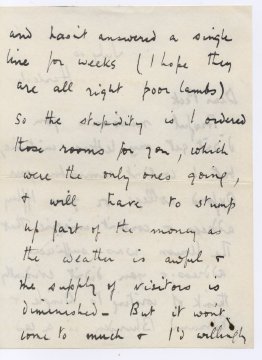 and hasn't answered a single
line for weeks (I hope they
are all right poor lambs)
So the stupidity is I ordered
those rooms for you, which
were the only ones going,
& will have to stump
up part of the money as
the weather is awful &
the supply of visitors is
diminished - But it won't
come to much & I'd willingly